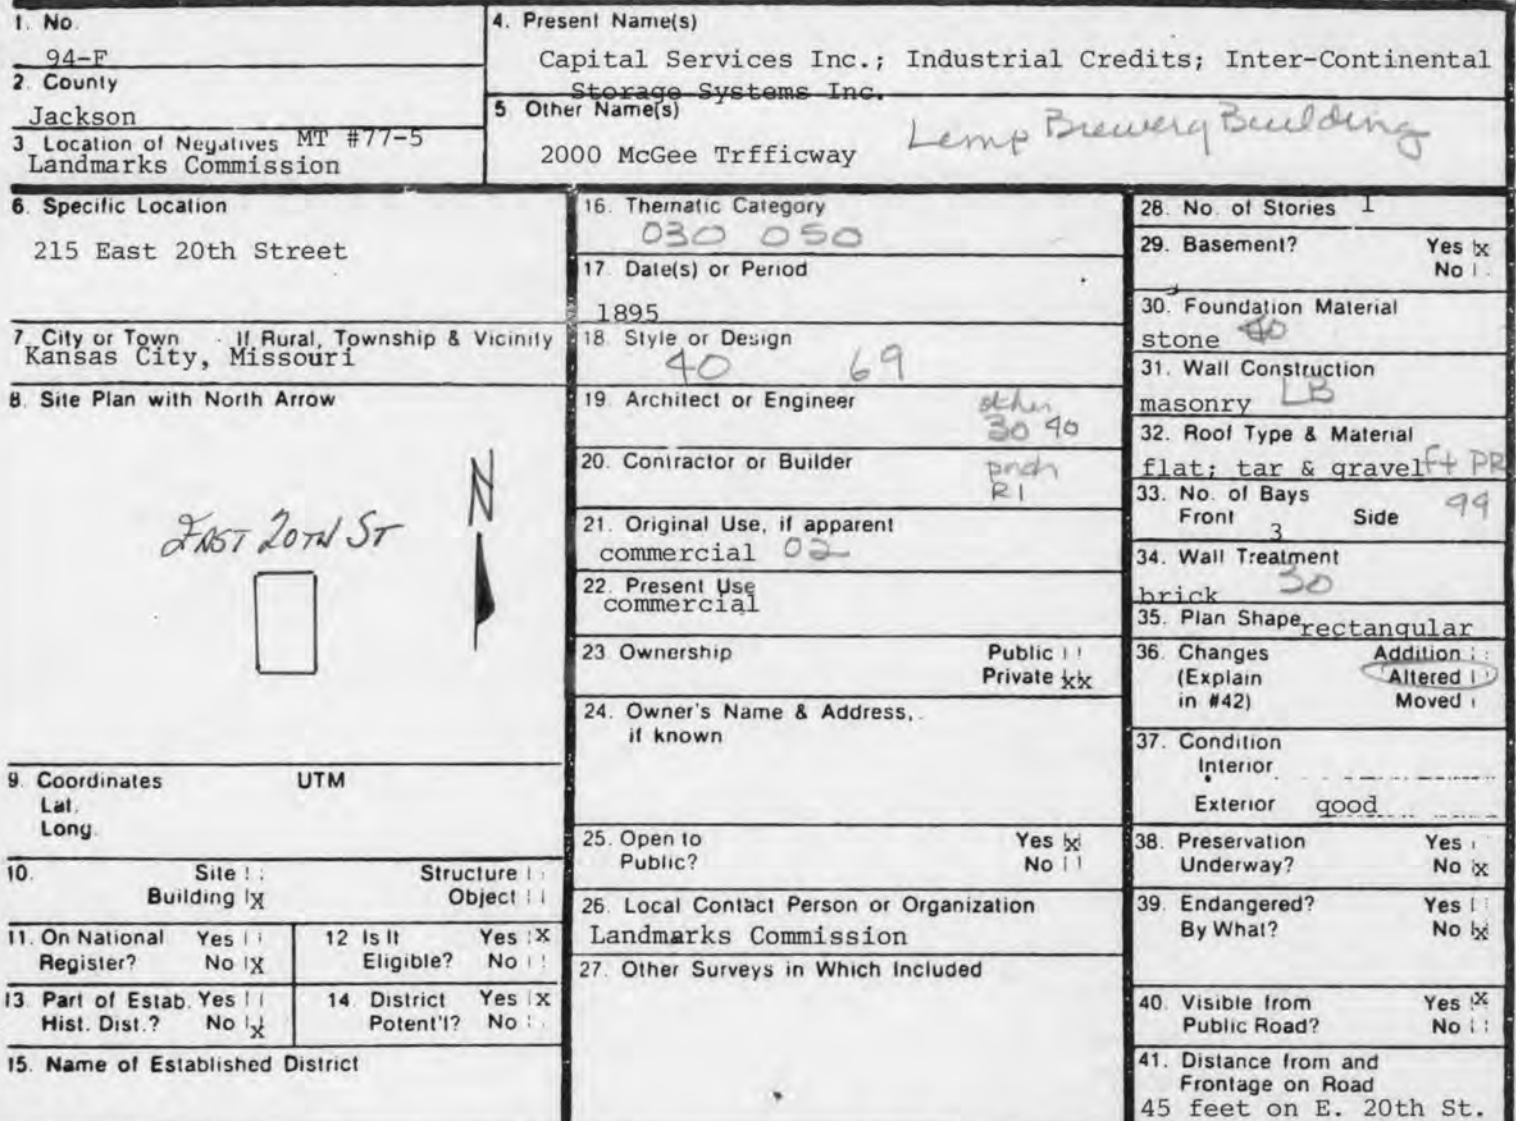 1. No.
94-F
2. County
Jackson
3 Location of Negatives MT #77-5
Landmarks Commission
4. Present Name(s)
Capital Services Inc.; Industrial Credits; Inter-Continental
Storage Systems Inc.
5 Other Name(s)
Lemp Brewery Building
2000 McGee Trfficway
6. Specific Location
215 East 20th Street
7. City or Town If Rural, Township & Vicinity
Kansas City, Missouri
8. Site Plan with North Arrow
N
EAST 20TH ST
9. Coordinates UTM
Lat.
Long.
10. Site Structure
Building X Object
11. On National Yes
Register? No X
12 Is It Yes X
Eligible? No
13. Part of Estab. Yes
Hist. Dist.? No X
14. District Yes X
Potent'l? No
15. Name of Established District
16. Thematic Category
030 050
17. Date(s) or Period
1895
18. Style or Design
40 69
19. Architect or Engineer
other
30 40
20. Contractor or Builder
R1
21. Original Use, if apparent
commercial 02
22. Present Use
commercial
23 Ownership Public
Private xx
24. Owner's Name & Address,
if known
25. Open to Yes x
Public? No
26. Local Contact Person or Organization
Landmarks Commission
27. Other Surveys in Which Included
28. No. of Stories 1
29. Basement? Yes x
No
30. Foundation Material
stone 40
31. Wall Construction
masonry LB
32. Roof Type & Material
flat; tar & gravel ft PR
33. No. of Bays 99
Front 3 Side
34. Wall Treatment
brick 30
35. Plan Shape rectangular
36. Changes Addition
(Explain Altered
in #42) Moved
37. Condition
Interior
Exterior good
38. Preservation Yes
Underway? No x
39. Endangered? Yes
By What? No x
40. Visible from Yes X
Public Road? No
41. Distance from and
Frontage on Road
45 feet on E. 20th St.